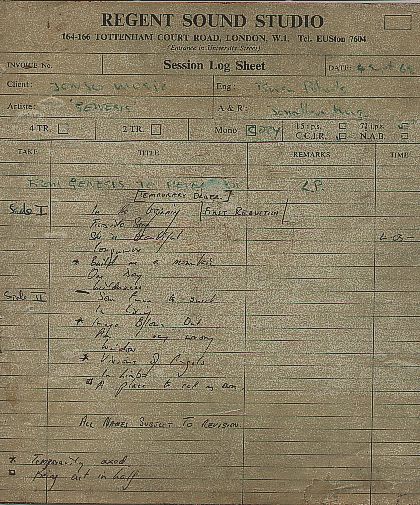 REGENT SOUND STUDIO
164-166 TOTTENHAM COURT ROAD, LONDON, W.1. Tel. EUSton 7604
(Entrance in University Street)
INVOICE No. Session Log Sheet DATE
Client: JONJO MUSIC Eng:
Artiste: "GENESIS" A & R: Jonathan King
4 TR. 2 TR. Mono COPY 15 i.p.s. 7½ i.p.s.
C.C.I.R. N.A.B.
TAKE TITLE REMARKS TIME
FROM GENESIS TO L.P.
[TEMPORARY ORDER]
Side I In the Beginning [FIRST REDUCTION]
Fireside Song
She is Beautiful
* Build me a mountain
One Day
Wilderness
Side II
In Hiding
* Image Blown Out
Window
* Visions of Angels
In Limbo
A place to call my own.
ALL NAMES SUBJECT TO REVISION
* Temporarily axed
being cut in half